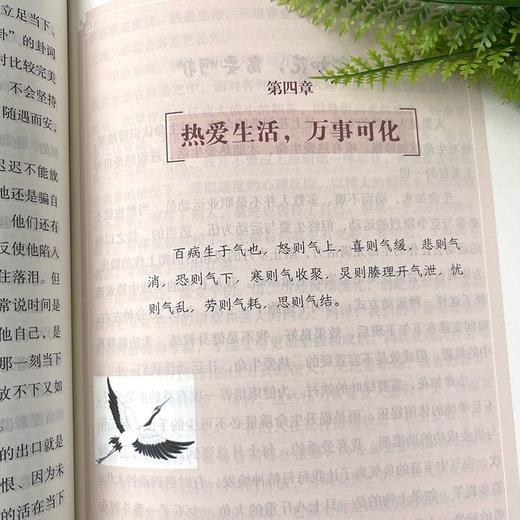 立足当下、
卦”的卦词
讨比较完美
不会坚持
随遇而安，
迟迟不能放
他还是骗自
他们还有
反使他陷入
住落泪。但
常说时间是
他自己，是
那一刻当下
放不下又如
的出口就是
恨、因为未
的活在当下
第四章
热爱生活，万事可化
百病生于气也，怒则气上，喜则气缓，悲则气
消，恐则气下，寒则气收聚，炅则腠理开气泄，忧
则气乱，劳则气耗，思则气结。